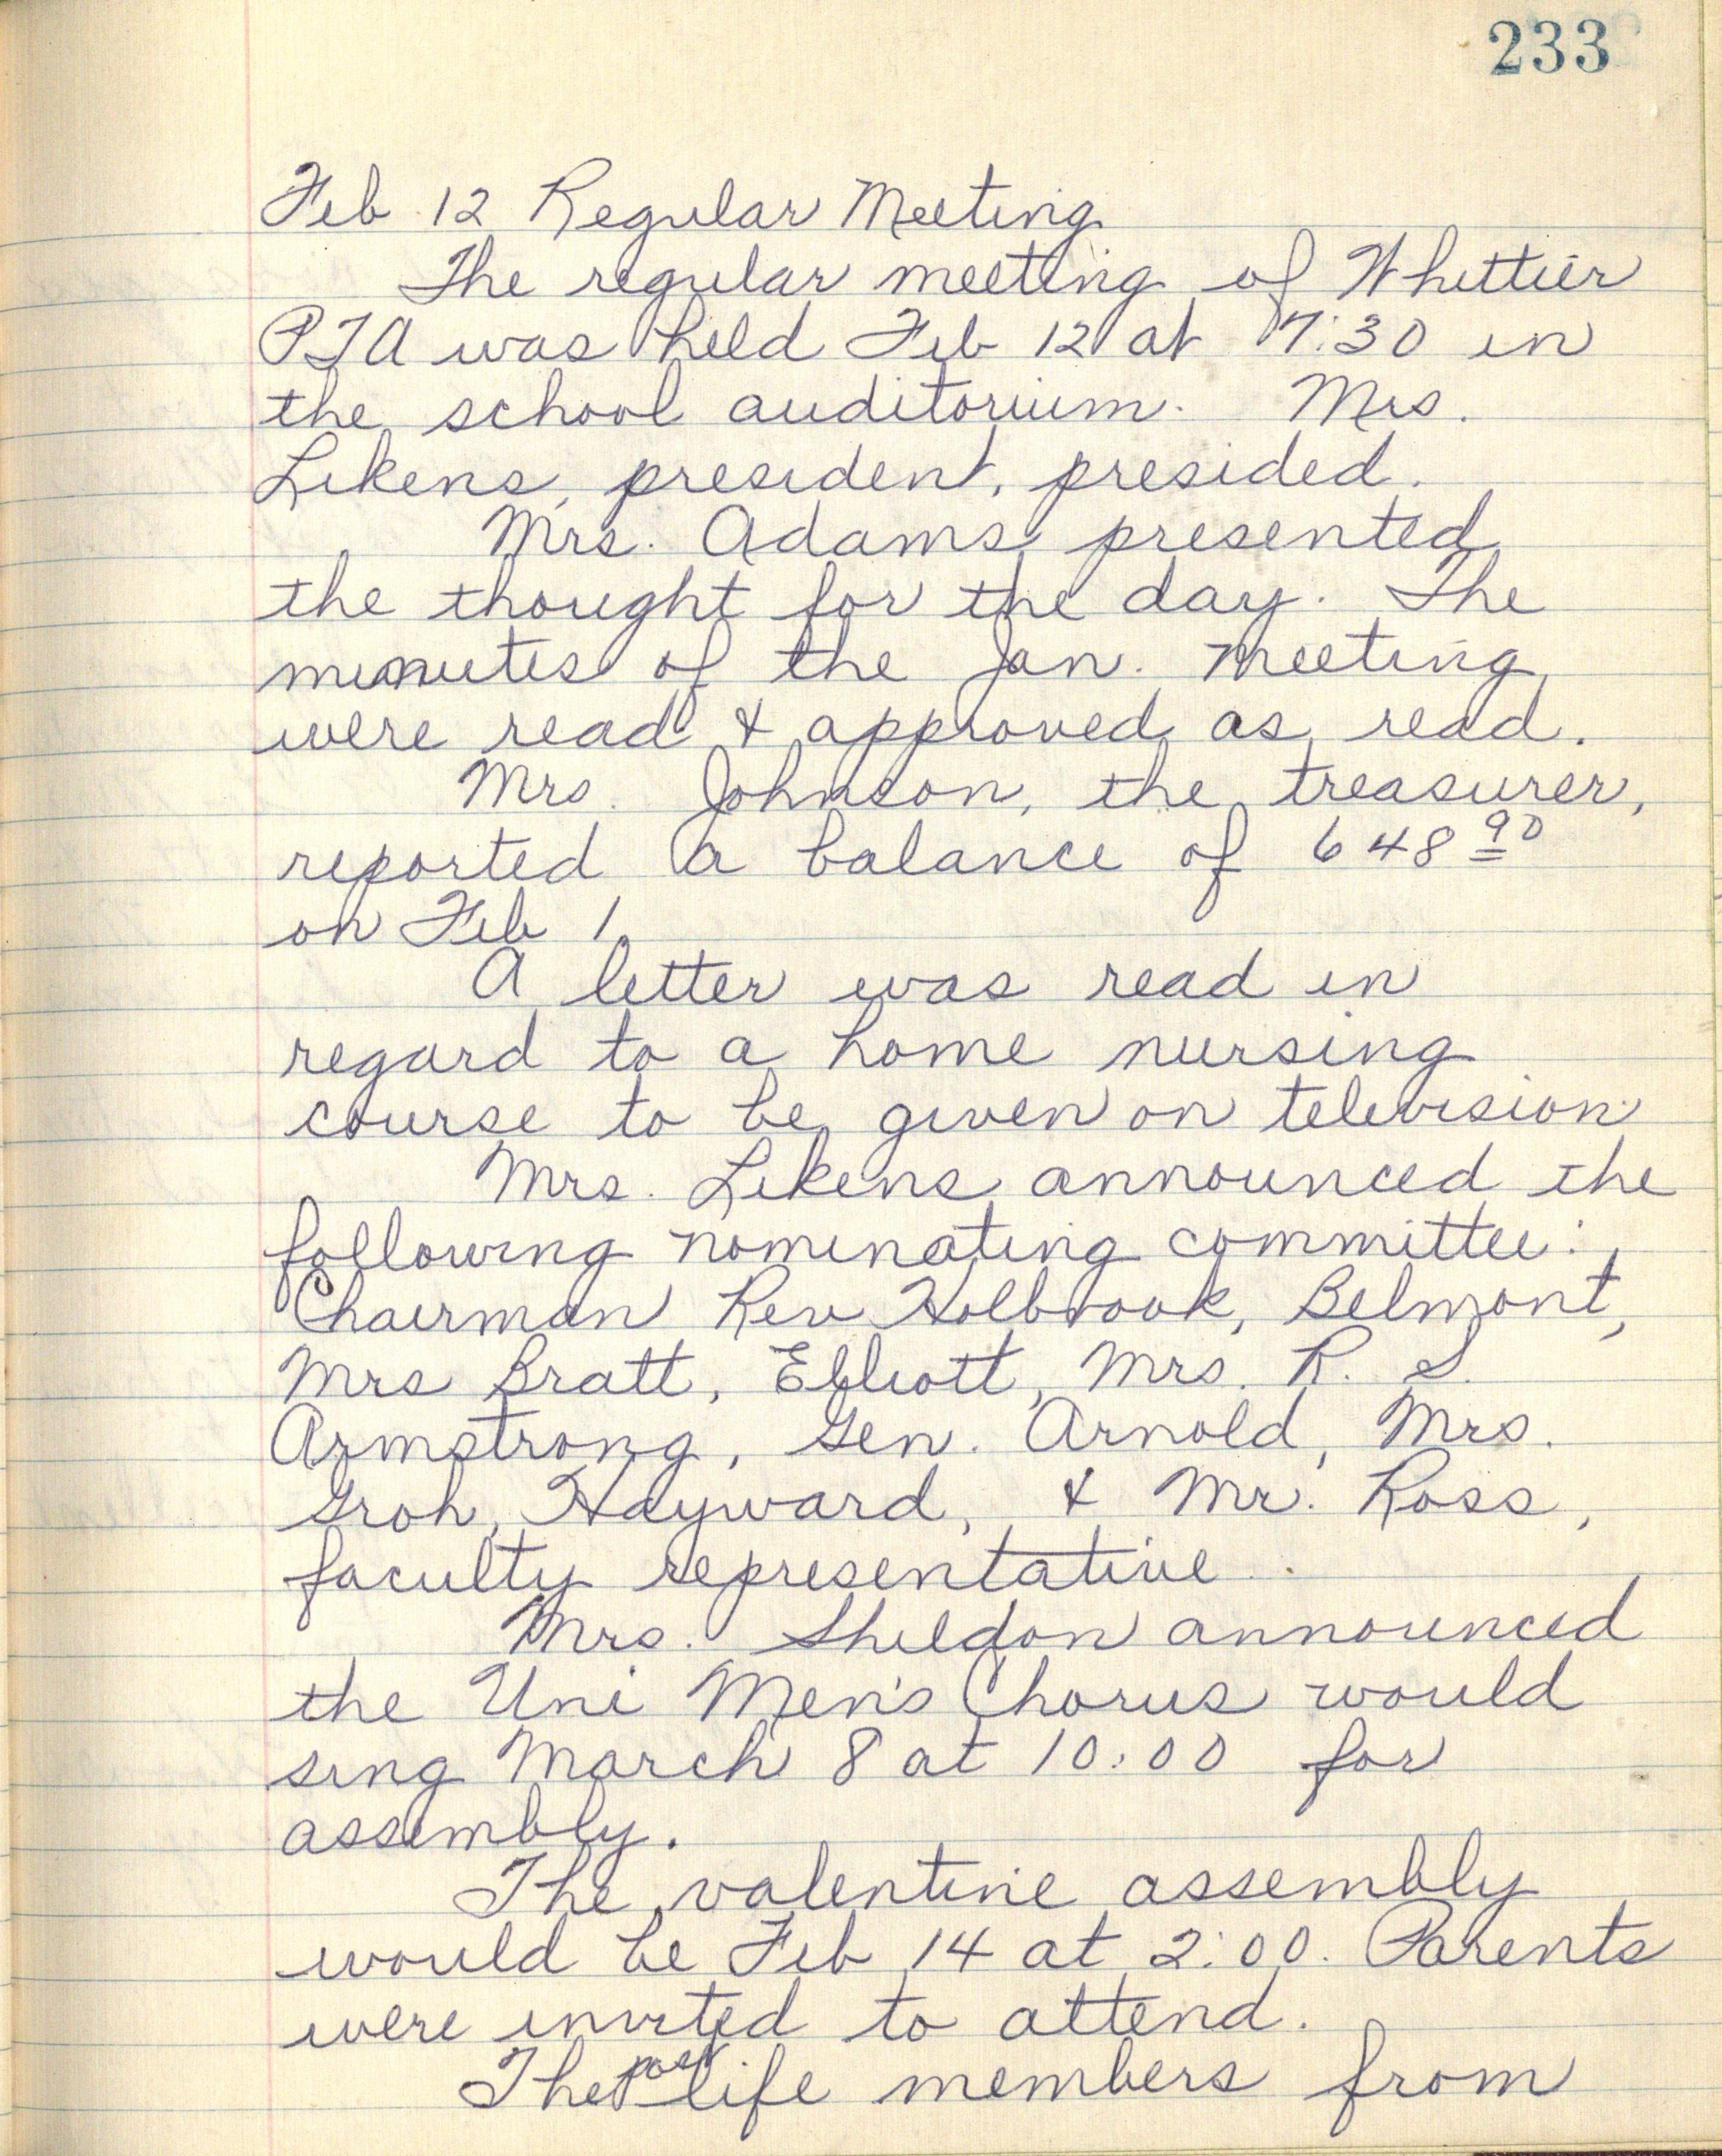 233
Feb 12 Regular Meeting
The regular meeting of Whittier
PTA was held Feb 12 at 7:30 in
the school auditorium. Mrs.
Likens, president, presided.
Mrs. Adams presented
the thought for the day. The
minutes of the Jan. meeting
were read & approved as read.
Mrs. Johnson, the treasurer,
reported a balance of 648 90
on Feb 1
A letter was read in
regard to a home nursing
course to be given on television
Mrs. Likens announced the
following nominating committee:
Chairman Rev Holbrook, Belmont,
Mrs Bratt, Elliott, Mrs. R. S.
Armstrong, Gen. Arnold, Mrs.
Groh, Hayward, & Mr. Ross,
faculty representative.
Mrs. Sheldon announced
the Uni Men's Chorus would
sing March 8 at 10:00 for
assembly.
The valentine assembly
would be Feb 14 at 2:00. Parents
were invited to attend.
The past life members from